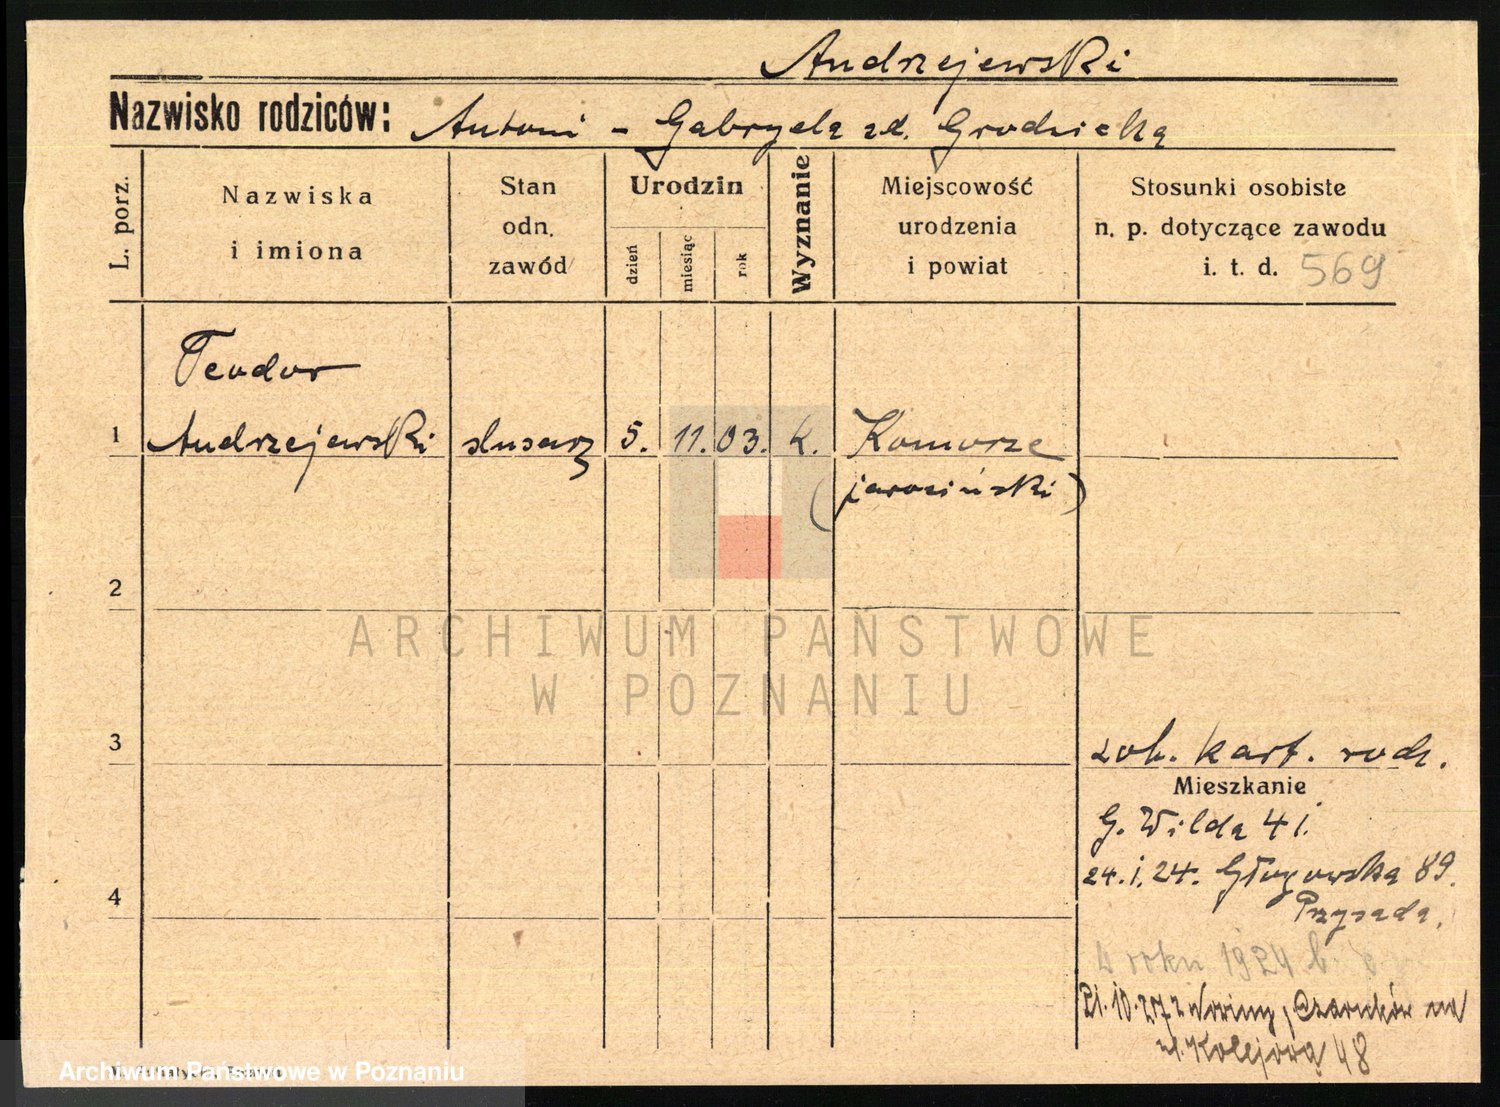 Andrzejewski
Nazwisko rodziców: Antoni - Gabryela zd. Grodzicka
L. porz.
Nazwiska
i imiona
Stan
odn.
zawód
Urodzin
dzień
miesiąc
rok
Wyznanie
Miejscowość
urodzenia
i powiat
Stosunki osobiste
n. p. dotyczące zawodu
i. t. d. 569
Teodor
1 Andrzejewski ślusarz 5. 11. 03. k. Komorze
(jarociński)
2
ARCHIWUM PAŃSTWOWE
W POZNANIU
3
zob. kart. rodz.
Mieszkanie
G. Wilda 41.
24.1.24. Głogowska 89.
4
Przysada.
roku 1924
21.10.27 z Czarnków na
ul. Kolejową 48
Archiwum Państwowe w Poznaniu